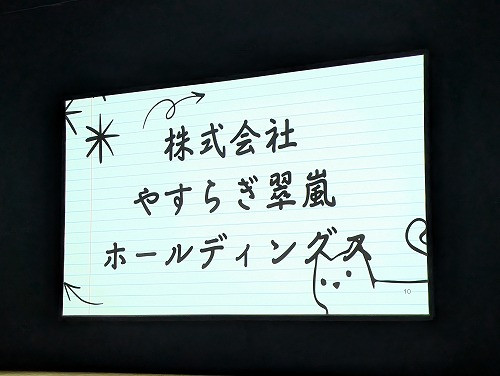 株式会社
やすらぎ翠嵐
ホールディングス
10